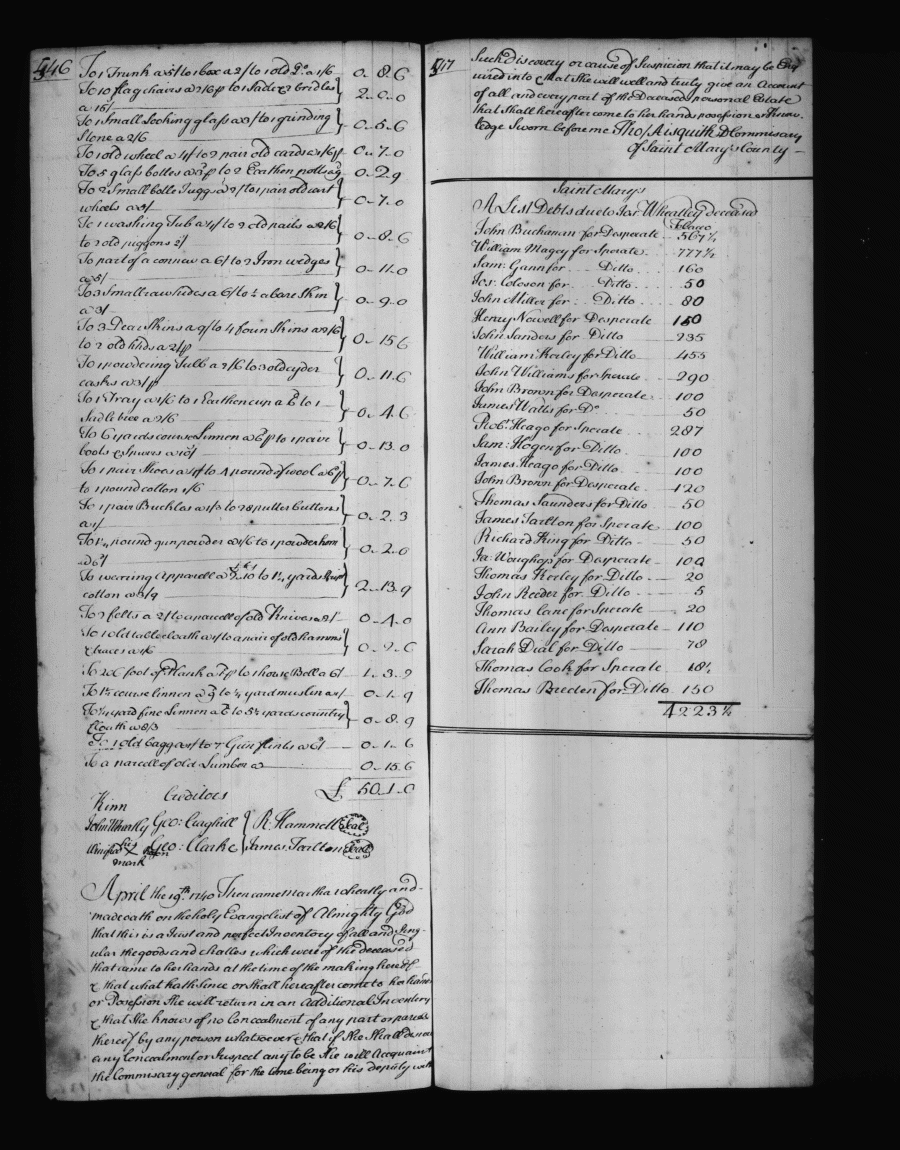 546
To 1 Trunk a 5/ to 1 box a 2/ to 1 old Do. a 1/6 0..8..6
To 10 flag chairs a 2/6 p to 1 Sadle & 2 bridles
a 15/ 2..0..0
To 1 Small Looking glass a 3/ to 1 grinding
Stone a 2/6 0..5..6
To 1 old wheel a 4/ to 2 pair old cards a 1/6 p 0..7..0
To 5 glass botles a to 2 Earthen potts 0..2..9
To 2 Small botle Juggs a 2/ to 1 pair old cart
wheels a 5/ 0..7..0
To 1 washing Tub a 4/ to 2 old pails a 2/6
to 2 old piggons 2/ 0..8..6
To part of a connew a 6/ to 2 Iron wedges
a 5/ 0..11..0
To 3 Small raw hides a 6/ to ½ a bare Skin
a 3/ 0..9..0
To 3 Dear Skins a 9/ to 4 foun Skins a 2/6
to 2 old hids a 2/ p 0..15..6
To 1 powdering Tubb a 2/6 to 3 old cyder
casks a 3/ p 0..11..6
To 1 Tray a 1/6 to 1 Earthen cup a 6 to 1
Sadle tree a 2/6 0..4..6
To 6 yards course Linnen a p to 1 pair
boots & Spurrs a 10/ 0..13..0
To 1 pair Shoes a 4/ to 4 pound of wool a 6 p
to 1 pound cotton 1/6 0..7..6
To 1 pair Buckles a 1/3 to 28 putter buttons
a 1/ 0..2..3
To 1¼ pound gun powder a 1/6 to 1 powder horn
a 6 0..2..0
To wearing Apparell a to 1¼ yards
cotton a 3/9 2..13..9
To 2 felts a 2/ to a parcell of old Knives a 2/ 0..4..0
To 1 old table cloath a 1/ to a pair of old hamms
& traces a 1/6 0..2..6
To 206 foot of Plank a p to 1 house Bell a 6/ 1..3..2
To 1½ course linnen a 9 to ¼ yard muslin a 1/ 0..1..9
To ¼ yard fine Linnen a 6 to 5½ yards country
Cloath a 8/3 0..8..9
To 1 old bagg a 1/ to 7 Gun flints a 6 0..1..6
To a parcell of old Lumber a 0..15..6
£ 50..1..0
Kinn Creditors
John Wheatly Geo: Craghill R: Hammett Seal
Winifred X Geo: Clarke James Tarlton Seal
her
mark
April the 19th 1740 Then came Martha Wheatly and
made oath on the holy Evangelist of Almighty God
that this is a Just and perfect Inventory of all and Sing-
ular the goods and chattles which were of the deceased
that came to her hands at the time of the making hereof
& that what hath Since or Shall hereafter come to her hands
or Possession She will return in an Additional Inventory
& that She knows of no Concealment of any part or parcell
thereof by any person whatsoever & that if She Shall
any Concealment or Suspect any to be She will Acquaint
the Commisary general for the time being or his deputy with
547
Such discovery or cause of Suspicion that it may be Enq
uired into & that She will well and truly give an Account
of all and every part of the Deceaseds personal Estate
that Shall hereafter come to her hands posession or Know-
ledge Sworn before me Tho/ Aisquith D Commisary
of Saint Mary's County
Saint Marys
A List Debts due to Wheatley deceased
Tobacco
John Buchanan for Desperate 567½
William Magey for Sperate 777½
Sam: Gann for Ditto 160
Jos: Coloson for Ditto 50
John Miller for Ditto 80
Henry Nowell for Desperate 150
John Sanders for Ditto 235
William Kerley for Ditto 455
John Williams for Sperate 290
John Brown for Desperate 100
James Watts for Do 50
Robt. Heago for Sperate 287
Sam: Hogen for Ditto 100
James Heago for Ditto 100
John Brown for Desperate 120
Thomas Saunders for Ditto 50
James Tarlton for Sperate 100
Richard King for Ditto 50
Ja: Woughop for Desperate 100
Thomas Kerley for Ditto 20
John Reeder for Ditto 5
Thomas Cane for Sperate 20
Ann Bailey for Desperate 110
Sarah Dial for Ditto 78
Thomas Cook for Sperate 18½
Thomas Breeden for Ditto 150
4223½